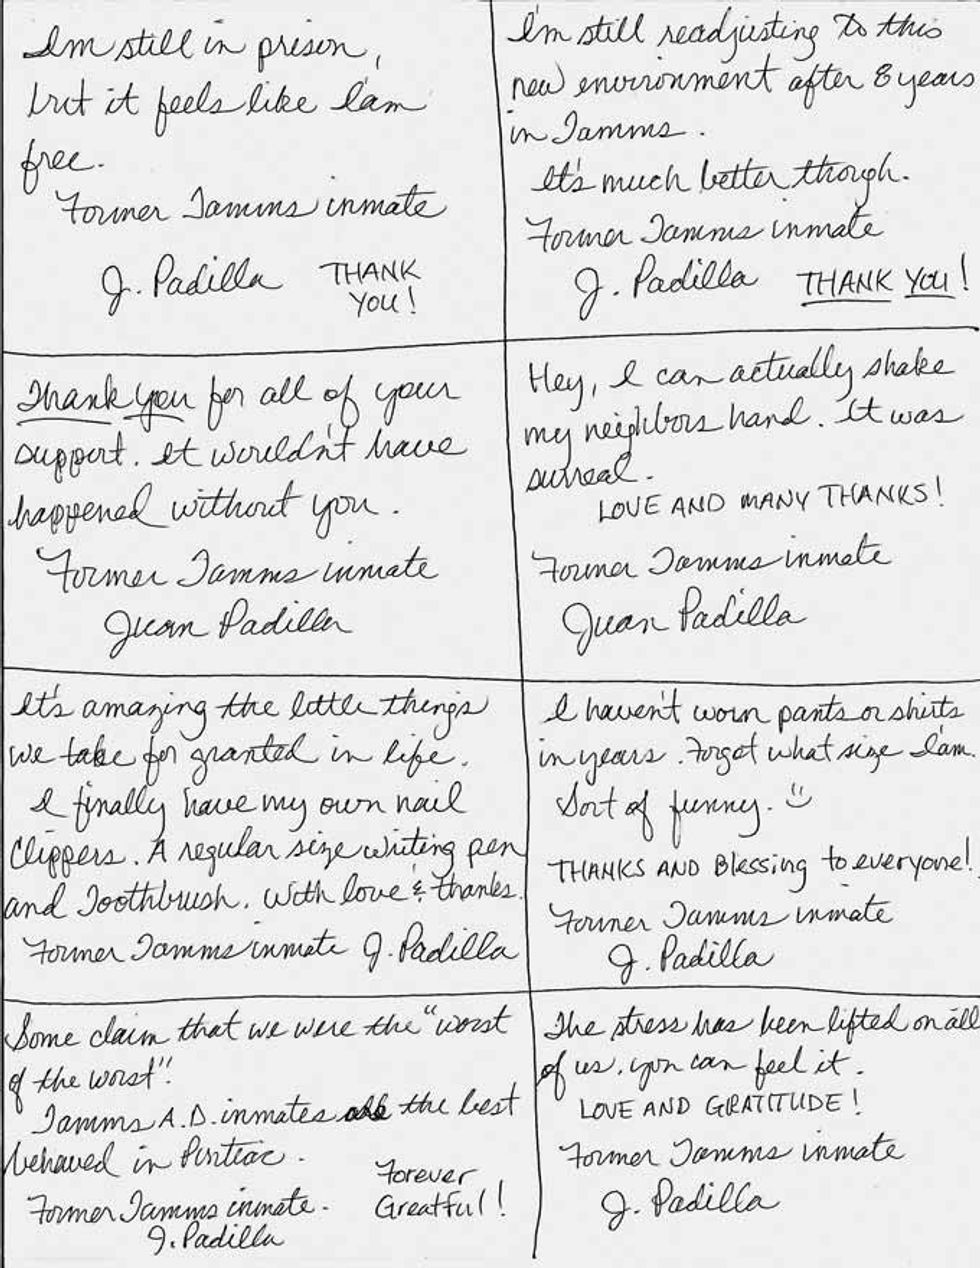 Im still in prison,
but it feels like I'am
free.
Former Tamms inmate
J. Padilla THANK
YOU!
I'm still readjusting to this
new environment after 8 years
in Tamms.
It's much better though.
Former Tamms inmate
J. Padilla THANK YOU!
Thank you for all of your
support. It wouldn't have
happened without you.
Former Tamms inmate
Juan Padilla
Hey, I can actually shake
my neighbors hand. It was
surreal.
LOVE AND MANY THANKS!
Former Tamms inmate
Juan Padilla
It's amazing the little things
we take for granted in life.
I finally have my own nail
clippers. A regular size writing pen
and Toothbrush. With love & thanks.
Former Tamms inmate J. Padilla
I haven't worn pants or shirts
in years. Forgot what size I'am.
Sort of funny.
THANKS AND Blessing to everyone!
Former Tamms inmate
J. Padilla
Some claim that we were the "worst
of the worst".
Tamms A.D. inmates are the best
behaved in Pontiac.
Forever
Former Tamms inmate. Greatful!
J. Padilla
The stress has been lifted on all
of us. you can feel it.
LOVE AND GRATITUDE!
Former Tamms inmate
J. Padilla